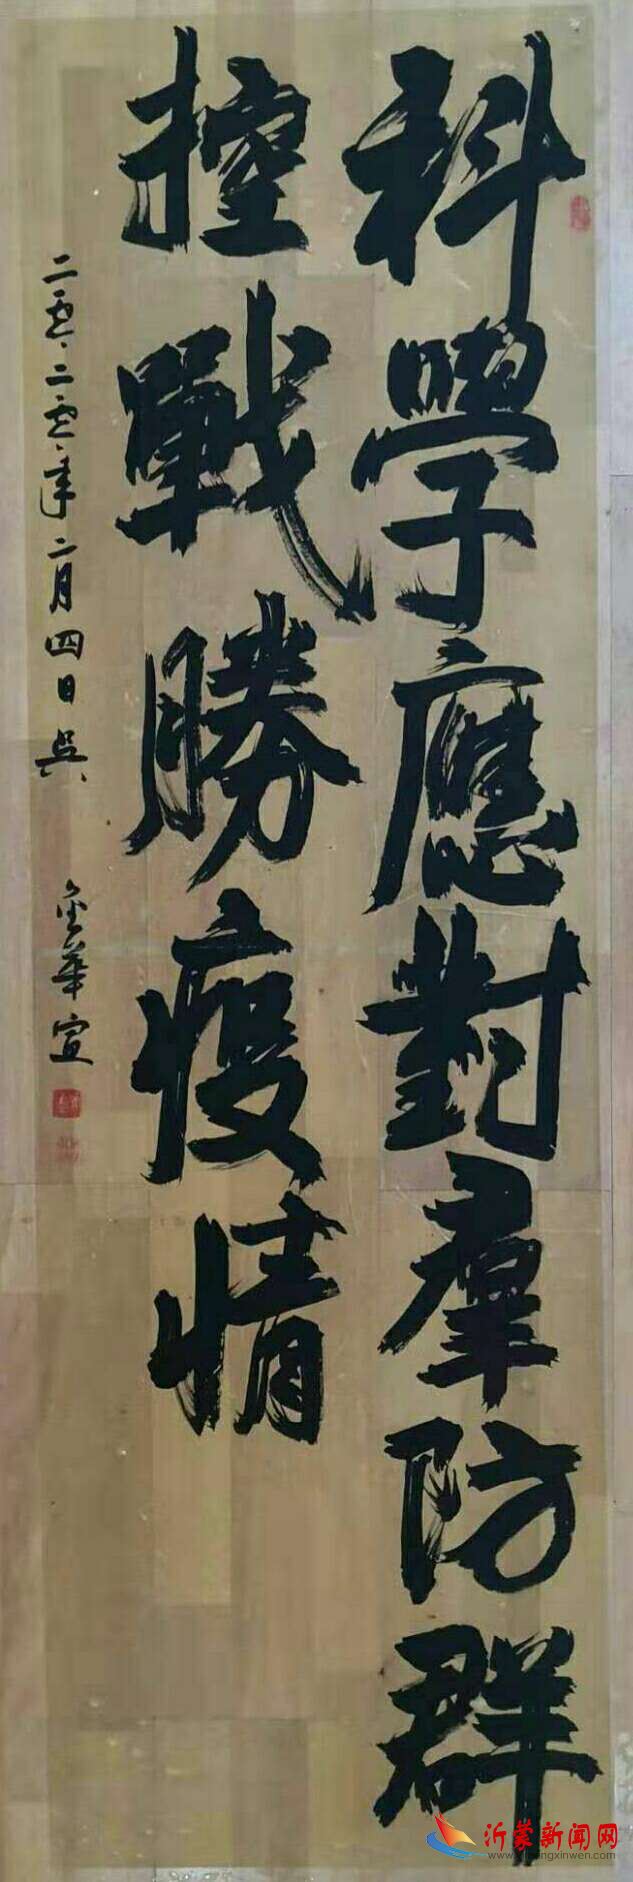 科學應對羣防群
控戰勝疫情
二零二零年二月四日吳金華宣
沂蒙新闻网
www.yimengxinwen.com